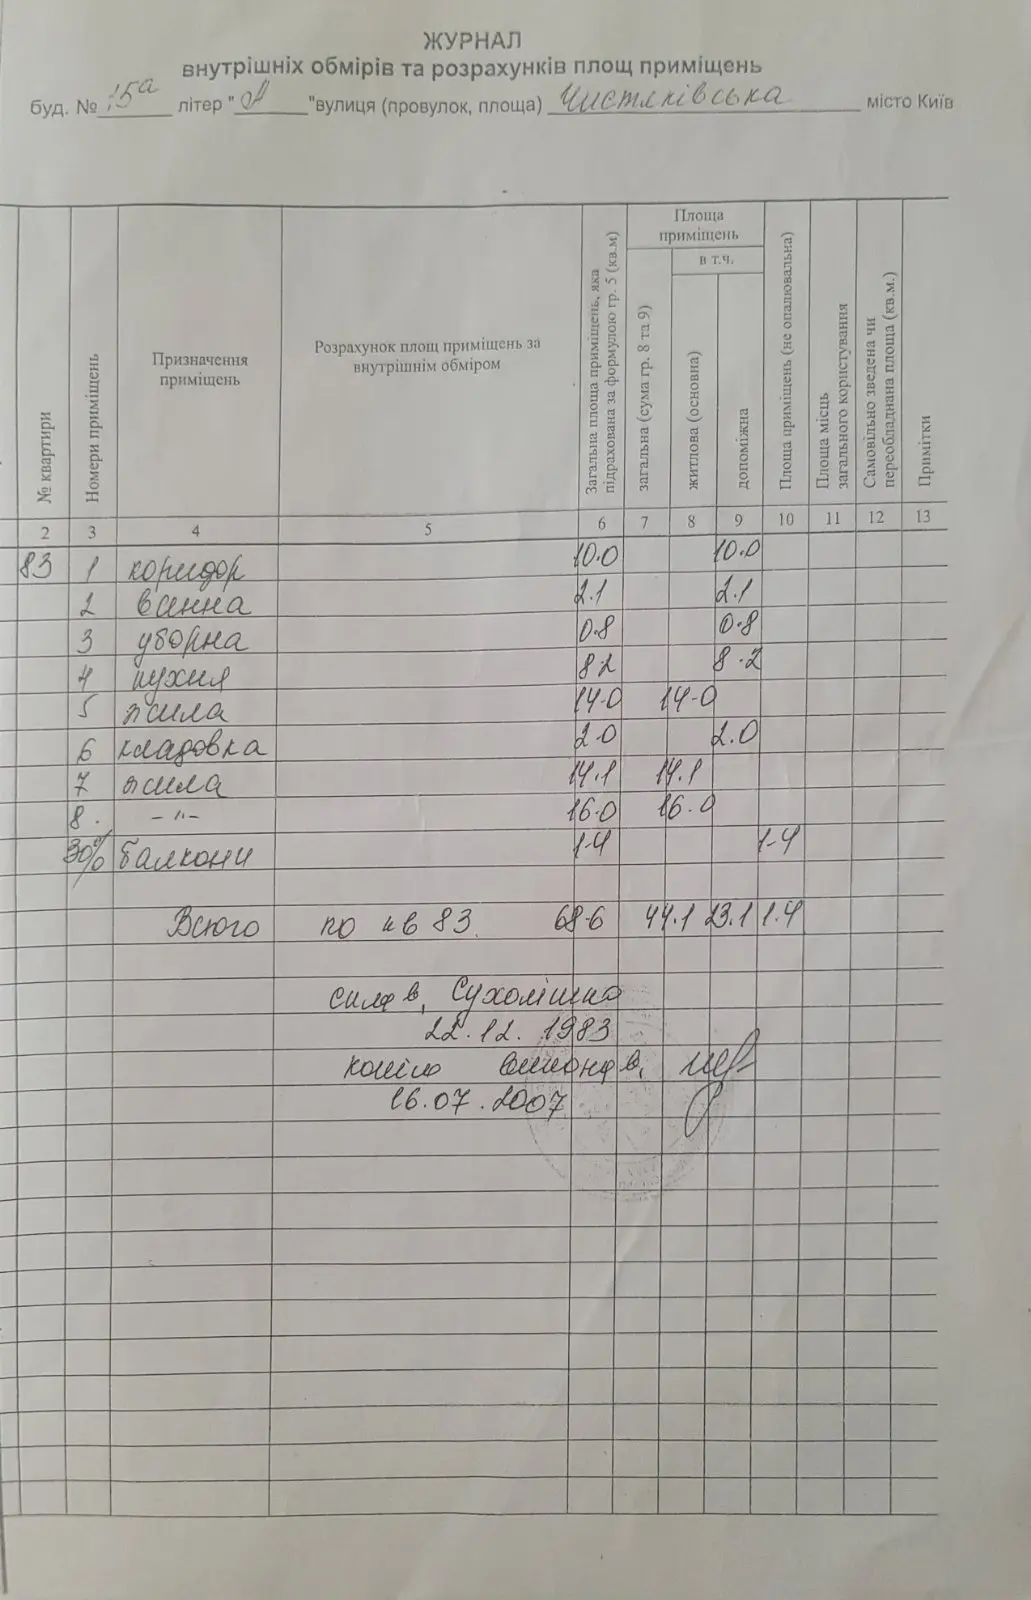 ЖУРНАЛ
внутрішніх обмірів та розрахунків площ приміщень
буд. № 15а літер " А "вулиця (провулок, площа) Чистяківська місто Київ
№ квартири
Номери приміщень
Призначення приміщень
Розрахунок площ приміщень за внутрішнім обміром
Загальна площа приміщень, яка підрахована за формулою гр. 5 (кв.м)
Площа приміщень
загальна (сума гр. 8 та 9)
в т.ч.
житлова (основна)
допоміжна
Площа приміщень (не опалювальна)
Площа місць загального користування
Самовільно зведена чи переобладнана площа (кв.м.)
Примітки
2 3 4 5 6 7 8 9 10 11 12 13
83 1 коридор 10.0 10.0
2 ванна 2.1 2.1
3 уборна 0.8 0.8
4 кухня 8 2 8.2
5 жила 14.0 14.0
6 кладовка 2.0 2.0
7 жила 14.1 14.1
8. - " - 16.0 16.0
30% балкони 1.4 1.4
Всього по кв 83. 68.6 44.1 23.1 1.4
22.12.1983
16.07.2007